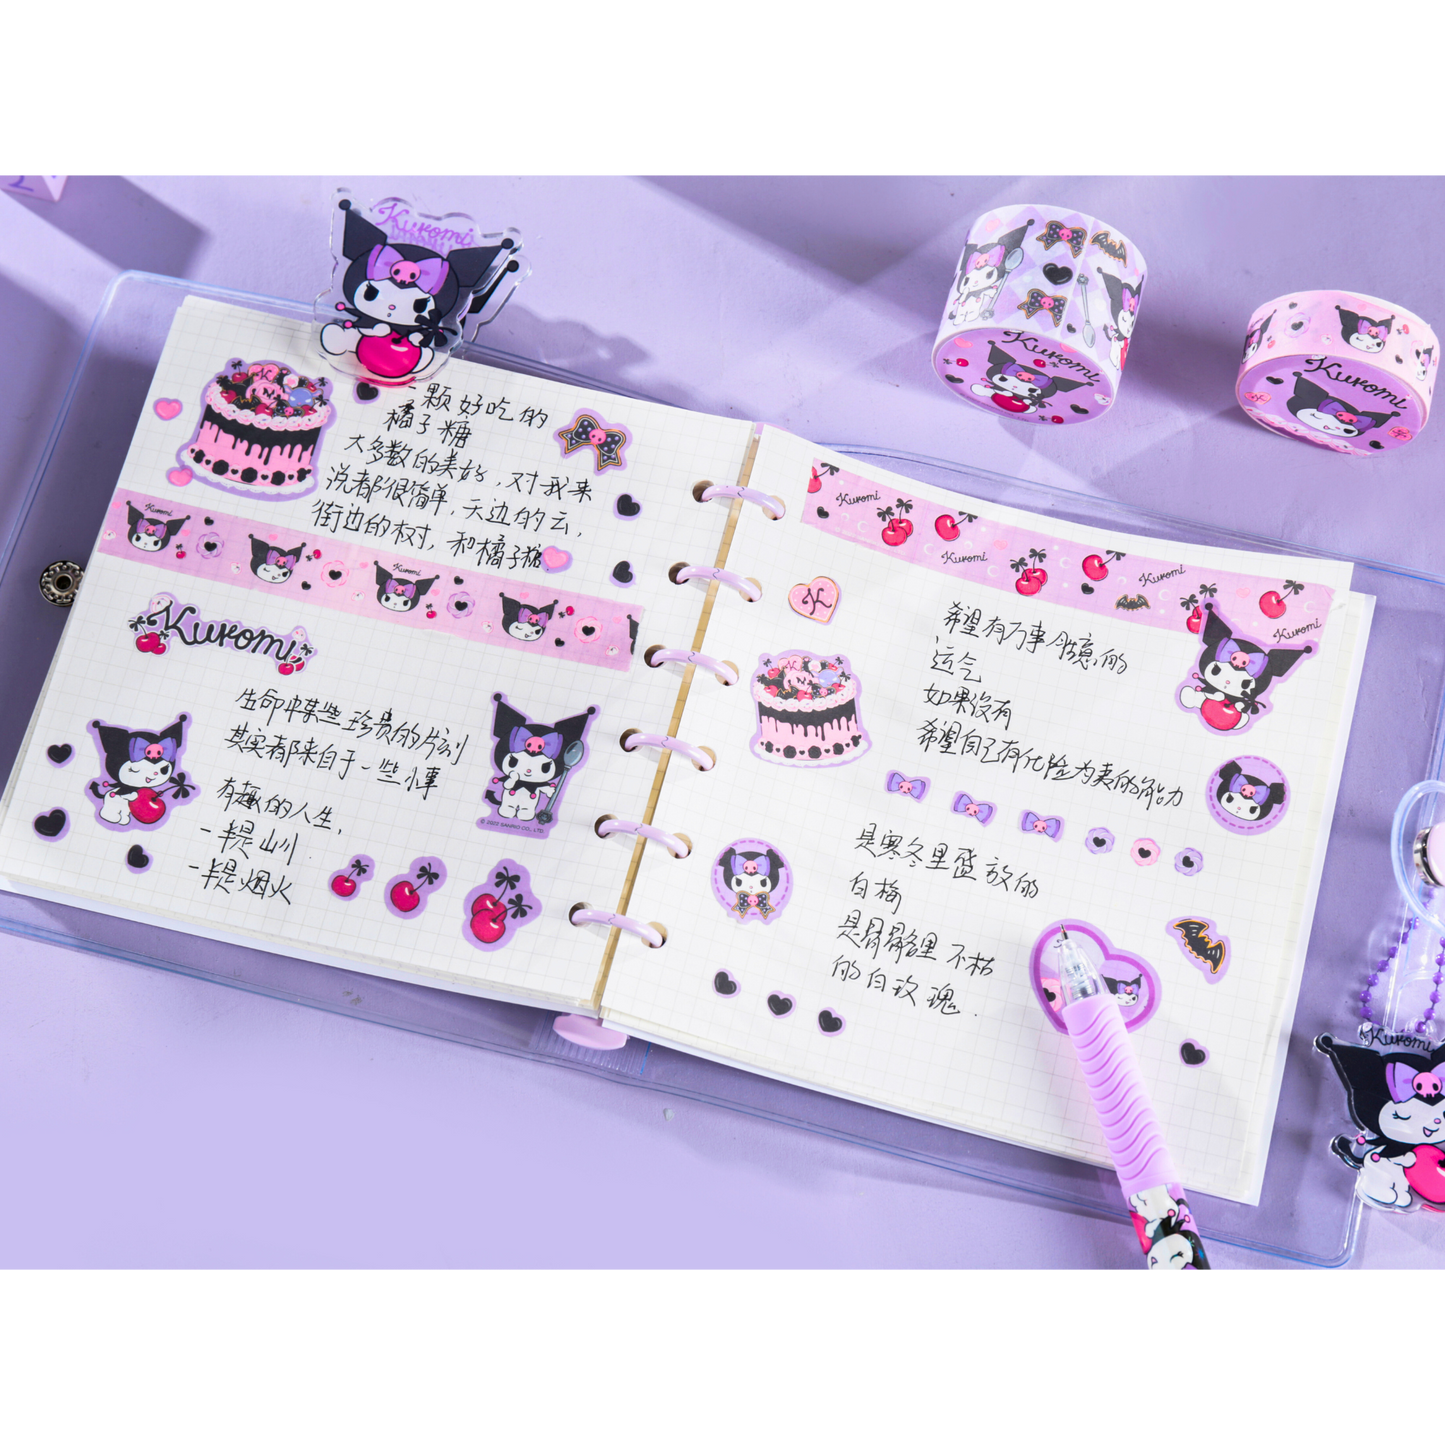 Kuromi
一颗好吃的
橘子糖
大多数的美好，对我来
说都很简单，天边的云，
街边的树，和橘子糖
Kuromi
Kuromi
Kuromi
生命中某些珍贵的片刻
其实都来自于一些小事
有趣的人生，
一半是山川．
一半是烟火
© 2022 SANRIO CO., LTD.
Kuromi
Kuromi
Kuromi
Kuromi
Kuromi
Kuromi
K
希望有万事胜意的
运气
如果没有
希望自己有化险为夷的能力
是寒冬里盛放的
白梅
是骨骼里不枯
的白玫瑰．
Kuromi